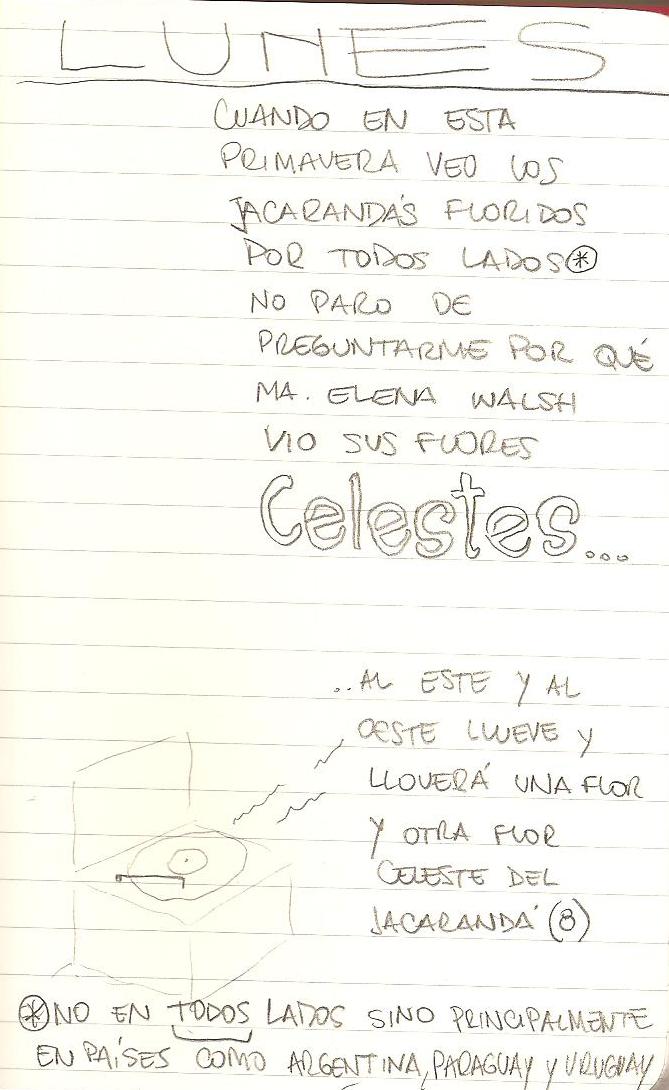 LUNES
CUANDO EN ESTA
PRIMAVERA VEO LOS
JACARANDÁS FLORIDOS
POR TODOS LADOS(*)
NO PARO DE
PREGUNTARME POR QUÉ
MA. ELENA WALSH
VIO SUS FLORES
Celestes...
..AL ESTE Y AL
OESTE LLUEVE Y
LLOVERÁ UNA FLOR
Y OTRA FLOR
CELESTE DEL
JACARANDÁ (8)
(*) NO EN TODOS LADOS SINO PRINCIPALMENTE
EN PAÍSES COMO ARGENTINA, PARAGUAY Y URUGUAY